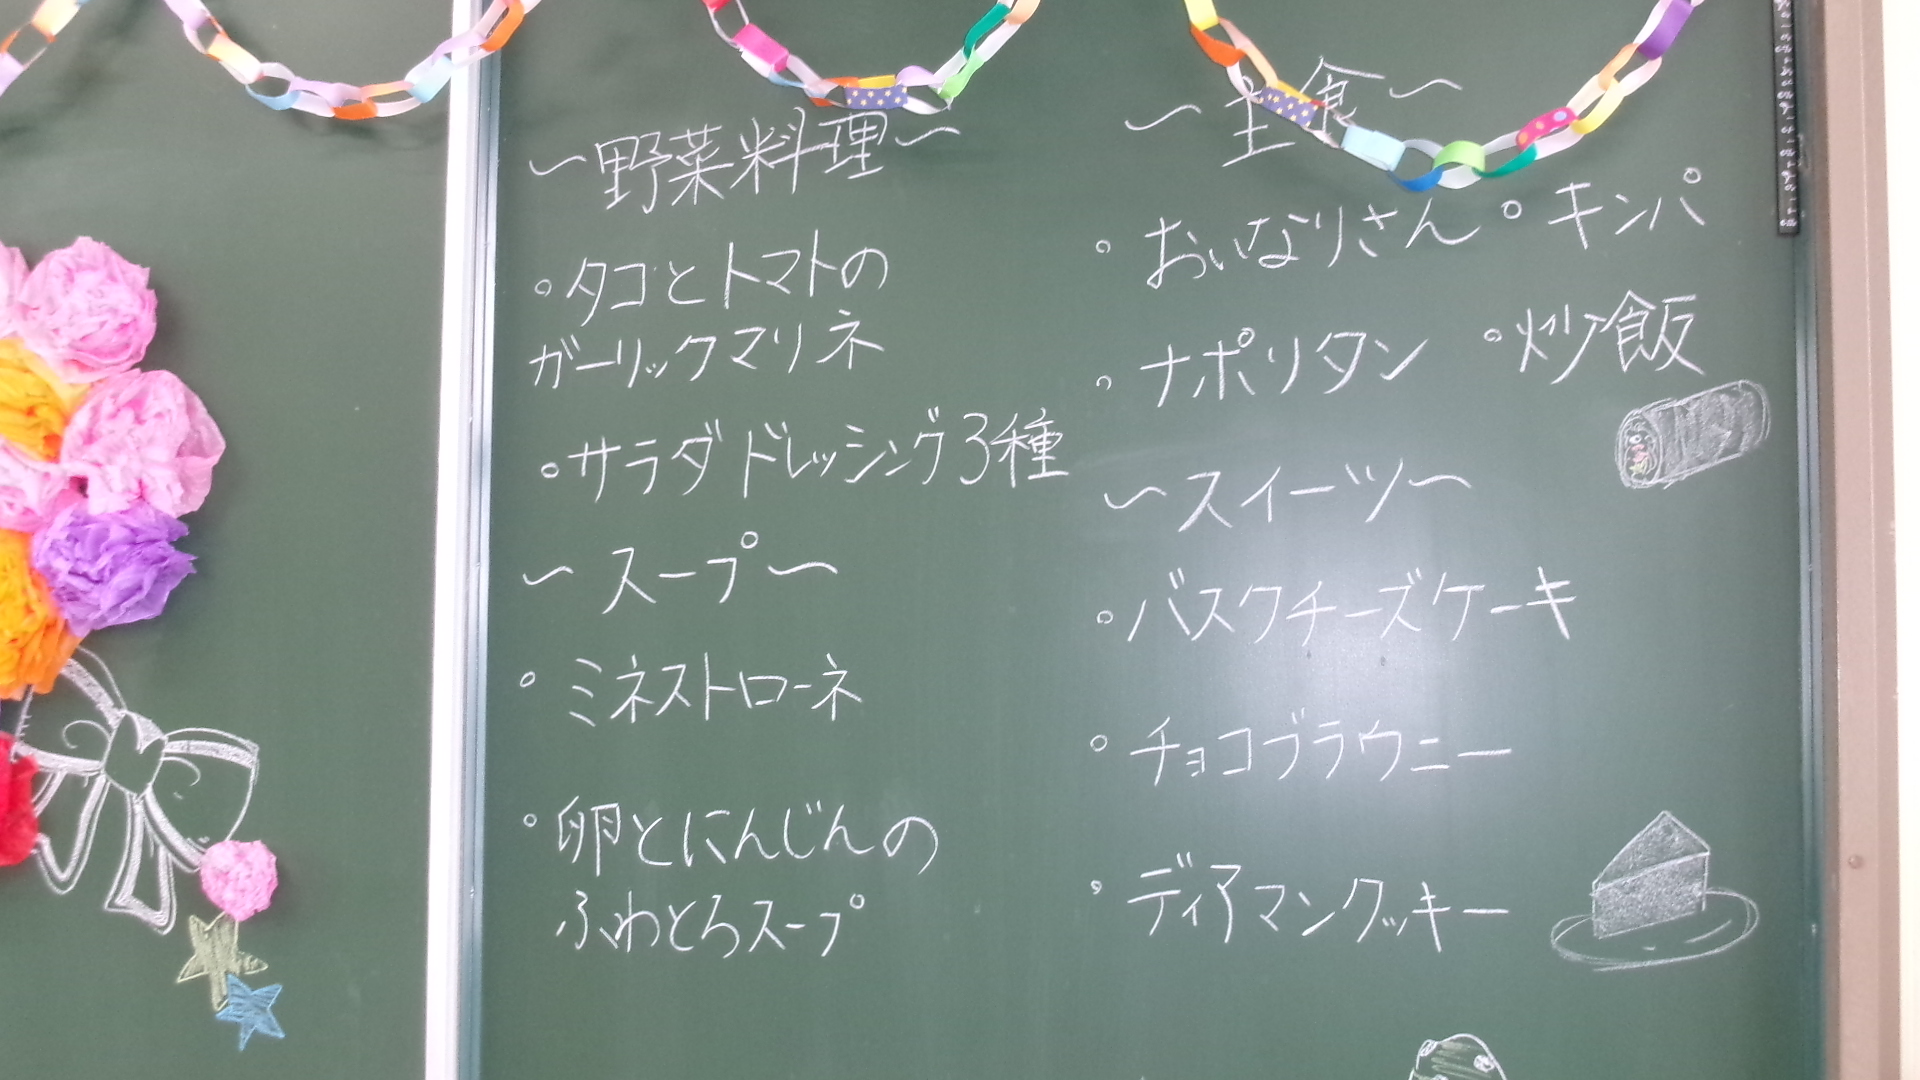 ～野菜料理～
・タコとトマトの
ガーリックマリネ
・サラダドレッシング3種
～スープ～
・ミネストローネ
・卵とにんじんの
ふわとろスープ
～主食～
・おいなりさん ・キンパ
・ナポリタン ・炒飯
～スイーツ～
・バスクチーズケーキ
・チョコブラウニー
・ディアマンクッキー